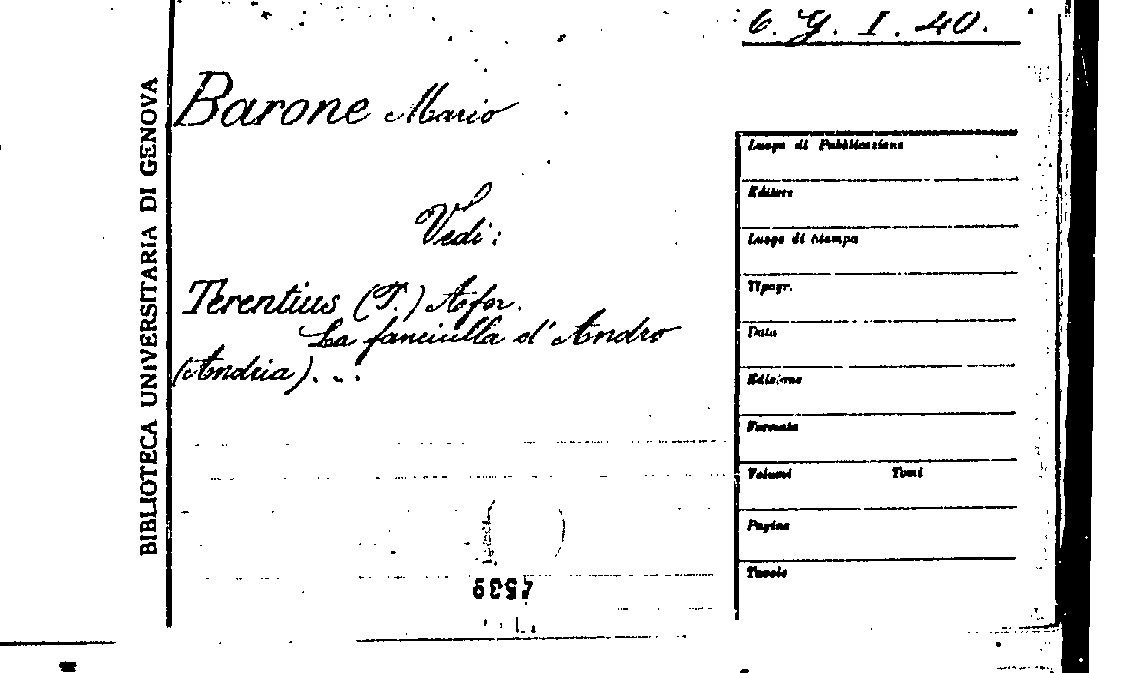 6. G. I. 40.
BIBLIOTECA UNIVERSITARIA DI GENOVA
Barone Mario
Vedi:
Terentius (P.) Afer.
La fanciulla d'Andro
(Andria)...
Luogo di Pubblicazione
Editore
Luogo di stampa
Tipogr.
Data
Edizione
Formato
Volumi Tomi
Pagine
Tavole